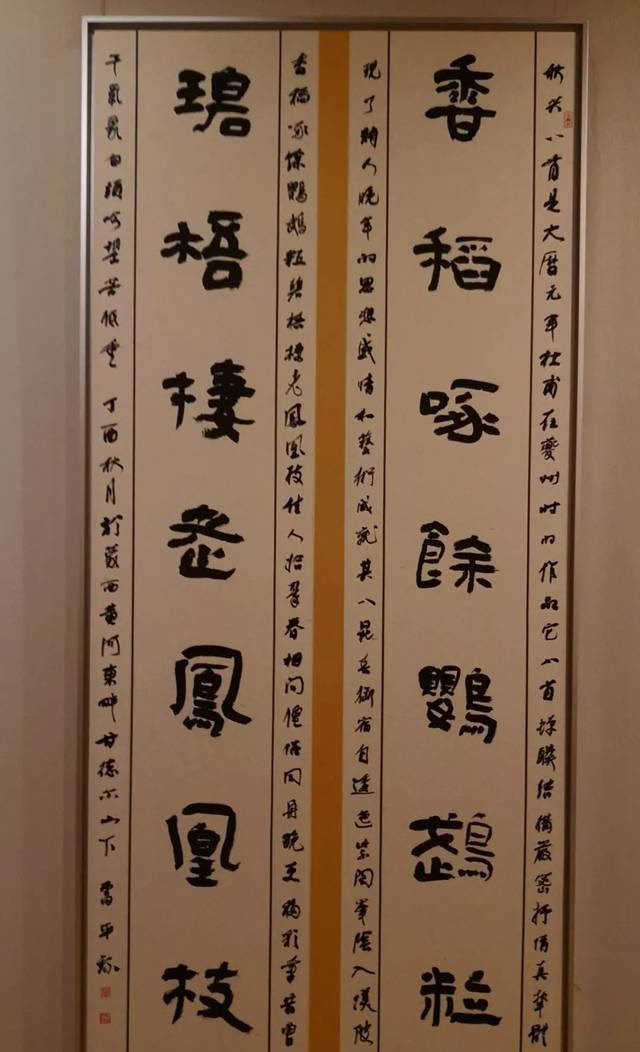 秋兴八首是大曆元年杜甫在夔州时的作品它八首蝉聯结構嚴密抒情真挚體
香稻啄餘鸚鵡粒
现了詩人晚年的思想感情和藝術成就其八昆吾御宿自逶迤紫閣峯陰入渼陂
香稻啄馀鸚鵡粒碧梧棲老鳳凰枝佳人拾翠春相问僊侣同舟晚更移彩筆昔曾
碧梧棲老鳳凰枝
干氣象白頭吟望苦低垂 丁酉秋月於蒙西黄河東畔甘德尔山下